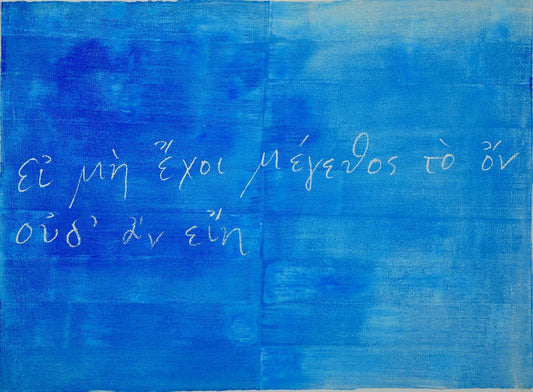 εἰ μὴ ἔχοι μέγεθος τὸ ὄν
οὐδ' ἂν εἴη